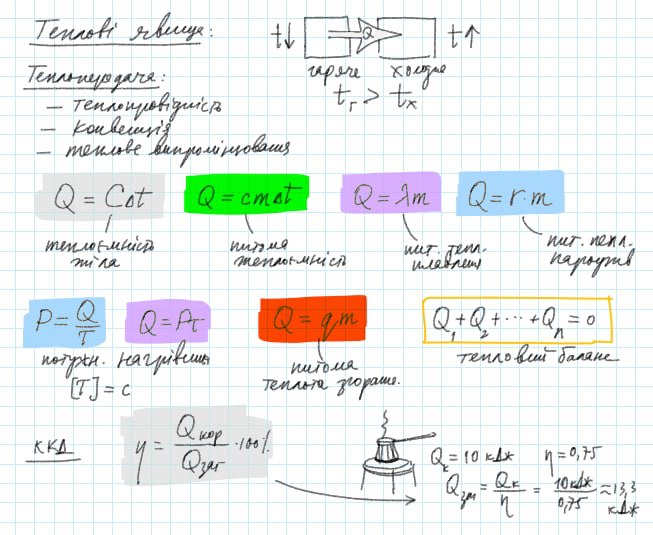 Теплові явища:
t↓ Q t↑
гаряче холодне
tг > tх
Теплопередача:
– теплопровідність
– конвекція
– теплове випромінювання
Q = CΔt Q = cmΔt Q = λm Q = r·m
теплоємність тіла
питома теплоємність
пит. тепл. плавлення
пит. тепл. пароутв
P = Q/τ Q = Pτ Q = qm Q₁ + Q₂ + ··· + Qₙ = 0
потужн. нагрівника
[τ] = c
питома теплота згоряння.
тепловий баланс
ККД
η = Qкор/Qзаг · 100%
Qк = 10 кДж η = 0,75
Qзаг = Qк/η = 10кДж/0,75 ≈ 13,3 кДж